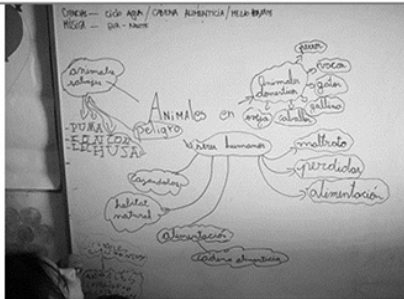 CIENCIAS — ciclo AGUA / CADENA ALIMENTICIA / MEDIO AMBIENTE
MÚSICA —
animales
salvajes
- PUMA
- LECHUSA
ANIMALES en
peligro
Animales
domesticos
perros
vacas
gatos
gallina
oveja
caballos
seres humanos
maltrato
perdidas
alimentación
cazandolos
habitat
natural
alimentación
cadena alimenticia